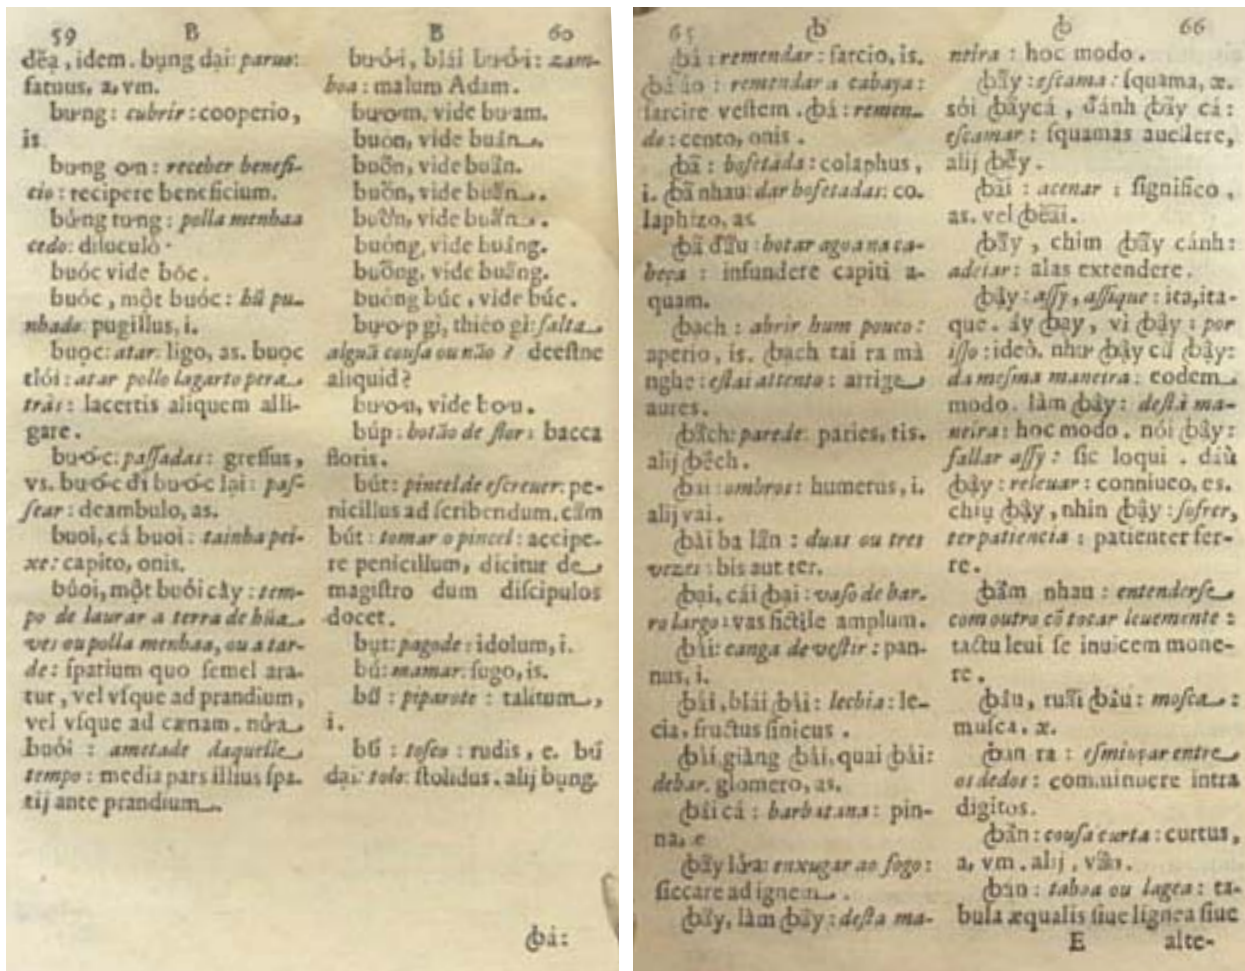 59 B
dĕạ, idem. bụng dại: paruo:
fatuus, a, vm.
bưng: cubrir: cooperio,
is
bưng ơn: receber benefi-
cio: recipere beneficium.
bửng tưng: polla menhaa
cedo: diluculò.
buóc vide bóc.
buóc, một buóc: hũ pu-
nhado: pugillus, i.
buọc: atar: ligo, as. buọc
tlói: atar pollo lagarto pera
tràs: lacertis aliquem alli-
gare.
bước: paſſadas: greſſus,
vs. bước đi bước lại: paſ-
ſear: deambulo, as.
buoi, cá buoi: tainha pei-
xe: capito, onis.
búoi, một buỏi cầy: tem-
po de laurar a terra de hũa
ves ou polla menhaa, ou a tar-
de: ſpatium quo ſemel ara-
tur, vel vſque ad prandium,
vel vſque ad cænam. nửa
buỏi: ametade daquelle
tempo: media pars illius ſpa-
tij ante prandium.
B 60
bưởi, blái bưởi: zam-
boa: malum Adam.
bươm, vide buam.
buon, vide buân.
buõn, vide buần.
buõn, vide buẫn.
vide
buóng, vide buâng.
buõng, vide buẫng.
buòng búc, vide búc.
bươp gì, thiéo gì: falta
algũa couſa ou não? deeſtne
aliquid?
bươu, vide bou.
búp: botão de flor: bacca
floris.
bút: pincel de eſcreuer: pe-
nicillus ad ſcribendum. cầm
bút: tomar o pincel: accipe-
re penicillum, dicitur de
magiſtro dum diſcipulos
docet.
bụt: pagode: idolum, i.
bú: mamar: ſugo, is.
bũ: piparote: talitum,
i.
bủ: toſco: rudis, e. bủ
dại: tolo: ſtolidus. alij bụng.
ꞗá:
65 ꞗ
ꞗá: remendar: ſarcio, is.
ꞗá áo: remendar a cabaya:
ſarcire veſtem. ꞗá: remen-
do: cento, onis.
ꞗã: bofetada: colaphus,
i. ꞗã nhau: dar bofetadas: co-
laphizo, as
ꞗã đầu: botar agoa na ca-
beça: infundere capiti a-
quam.
ꞗach: abrir hum pouco:
aperio, is. ꞗach tai ra mà
nghe: eſtai attento: arrige
aures.
ꞗãch: parede: paries, tis.
alij ꞗẽch.
ꞗai: ombros: humerus, i.
alij vai.
ꞗài ba lần: duas ou tres
vezes: bis aut ter.
ꞗại, cái ꞗại: vaſo de bar-
ro largo: vas fictile amplum.
ꞗải: canga de veſtir: pan-
nus, i.
ꞗải, blái ꞗải: lechia: le-
cia, fructus ſinicus.
giàng ꞗải, quai ꞗải:
debar. glomero, as.
ꞗâi cá: barbatana: pin-
na, e
ꞗãy lửa: enxugar ao fogo:
ſiccare ad ignem.
ꞗãy, làm ꞗãy: deſta ma-
ꞗ 66
neira: hoc modo.
ꞗãy: eſcama: ſquama, æ.
sói ꞗãy cá, đánh ꞗãy cá:
eſcamar: ſquamas auellere,
alij ꞗẽy.
ꞗãi: acenar: ſignifico,
as. vel ꞗẽãi.
ꞗãy, chim ꞗãy cánh:
adejar: alas extendere.
ꞗậy: aſſy, aſſique: ita, ita-
que. áy ꞗạy, vì ꞗậy: por
iſſo: ideò. như ꞗậy cũ ꞗậy:
da meſma maneira: eodem
modo. làm ꞗậy: deſta ma-
neira: hoc modo. nói ꞗậy:
fallar aſſy: ſic loqui. dàù
ꞗậy: releuar: conniueo, es.
chịu ꞗậy, nhin ꞗậy: ſofrer,
ter patiencia: patienter fer-
re.
ꞗấm nhau: entenderſe
com outro cõ tocar leuemente:
tactu leui ſe inuicem mone-
re.
ꞗâu, ruầi ꞗâu: moſca:
muſca, æ.
ꞗan ra: eſmiuçar entre
os dedos: comminuere intra
digitos.
ꞗăn: couſa curta: curtus,
a, vm. alij, văn.
ꞗán: taboa ou lagea: ta-
bula æqualis ſiue lignea ſiue
E alte-